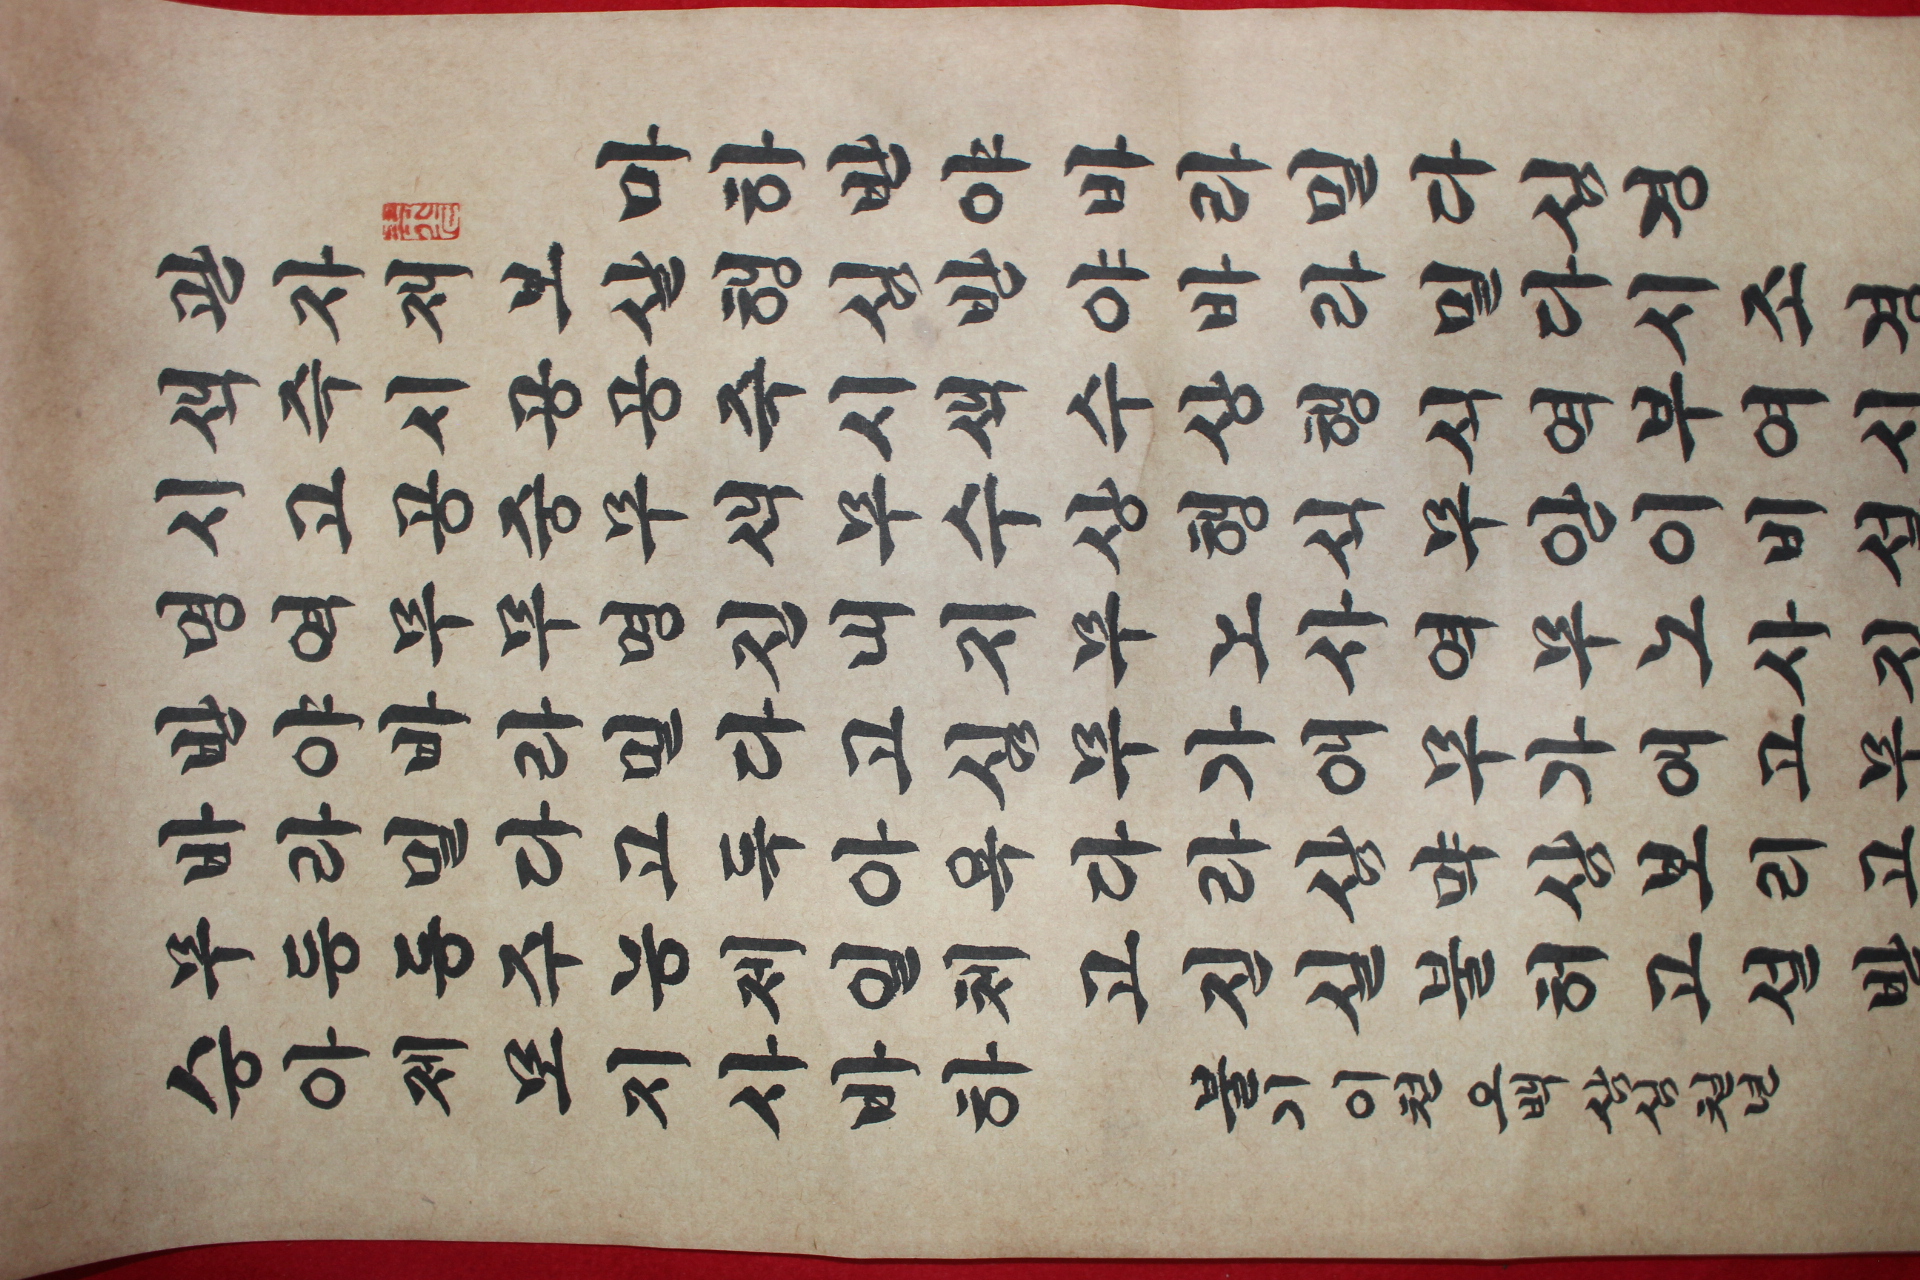 마하반야바라밀다심경
관자재보살행심반야바라밀다시조견
색즉시공공즉시색수상행식역부여시
시고공중무색무수상행식무안이비설
명역무무명진내지무노사역무노사진
반야바라밀다고심무가애무가애고무
바라밀다고득아욕다라삼막삼보리고
무등동주능제일체고진실불허고설반
승아제모지사바하
불기 이천 오백 삼십 칠년